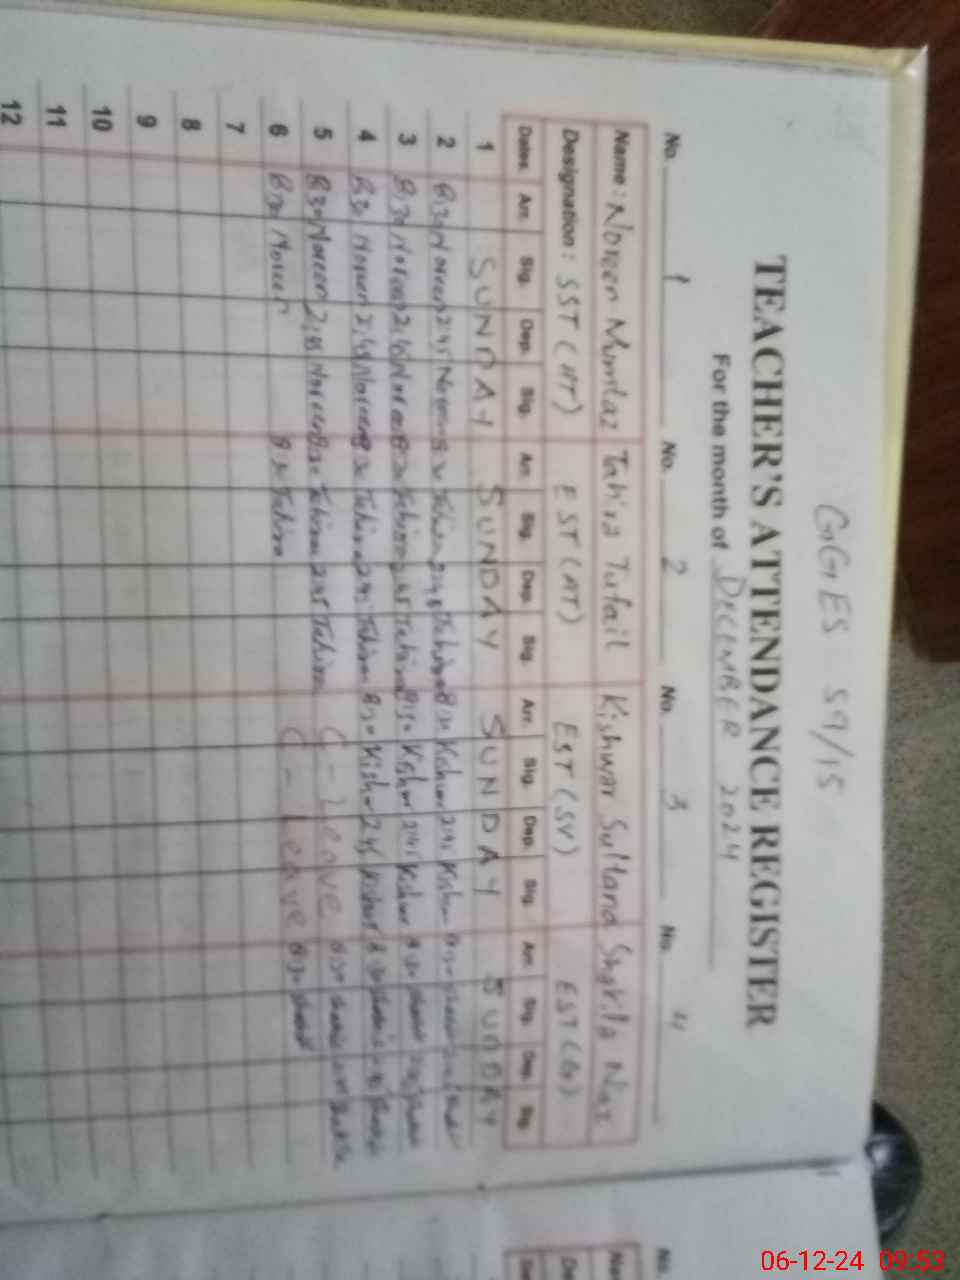 GGES 59/15
TEACHER'S ATTENDANCE REGISTER
For the month of DECEMBER 2024
No. 1 No. 2 No. 3 No. 4
Name: Noreen Mumtaz Tahira Tufail Kishwar Sultana Shakila Niaz
Designation: SST (HT) EST (AT) EST (SV) EST (G)
Dates Arr. Sig. Dep. Sig. Arr. Sig. Dep. Sig. Arr. Sig. Dep. Sig. Arr. Sig. Dep. Sig.
1 SUNDAY SUNDAY SUNDAY SUNDAY
2 8:30 Noreen 2:45 Noreen 8:30 Tahira 2:45 Tahira 8:30 Kishwar 2:45 Kishwar 8:30
3 8:30 Noreen 2:45 Noreen 8:30 Tahira 2:45 Tahira 8:30 Kishwar 2:45 Kishwar 8:30
4 8:30 Noreen 2:45 Noreen 8:30 Tahira 2:45 Tahira 8:30 Kishwar 2:45 Kishwar 8:30
5 8:30 Noreen 2:45 Noreen 8:30 Tahira 2:45 Tahira C-Leave 8:30
6 8:30 Noreen 8:30 Tahira C-Leave 8:30
7
8
9
10
11
12
No.
06-12-24 09:53